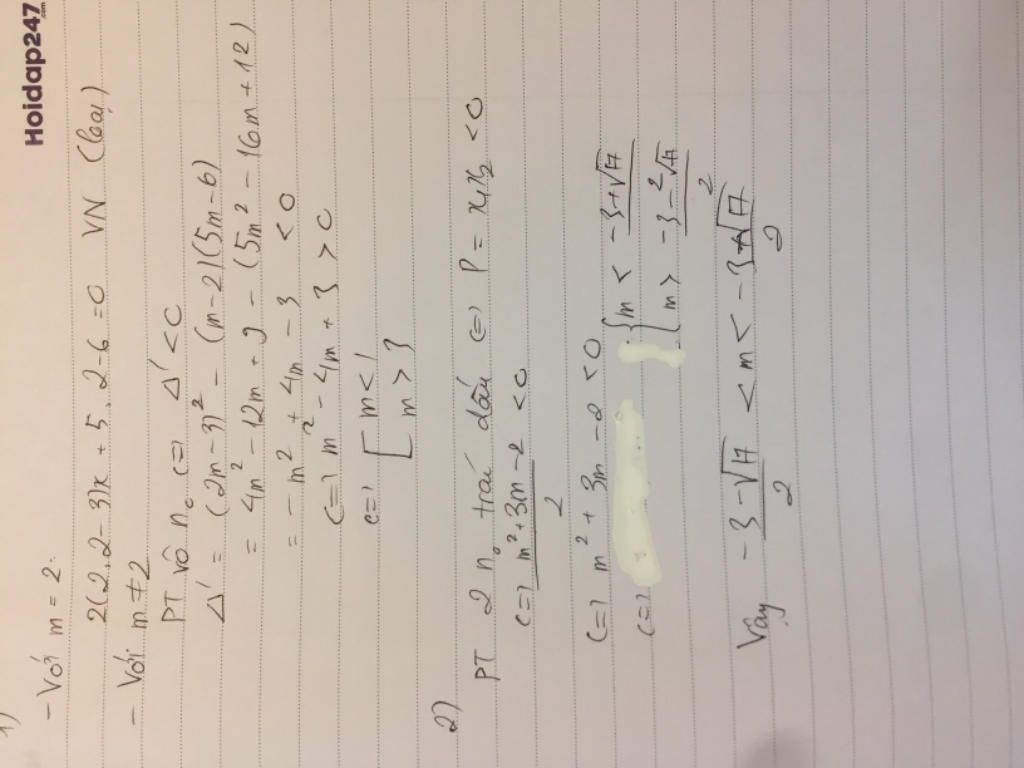 Hoidap247.com
1)
- Với m = 2.
2(2.2-3)x + 5.2-6 = 0 VN (loại)
- Với m ≠ 2
PT vô n₀ <=> Δ' < 0
Δ' = (2m-3)² - (m-2)(5m-6)
= 4m² - 12m + 9 - (5m² - 16m + 12)
= -m² + 4m - 3 < 0
<=> m² - 4m + 3 > 0
<=> [ m < 1
m > 3
2)
PT 2 n₀ trái dấu <=> P = x₁x₂ < 0
<=> m² + 3m - 2 / 2 < 0
<=> m² + 3m - 2 < 0
<=> { m < -3+√17 / 2
m > -3-√17 / 2
Vậy -3-√17 / 2 < m < -3+√17 / 2